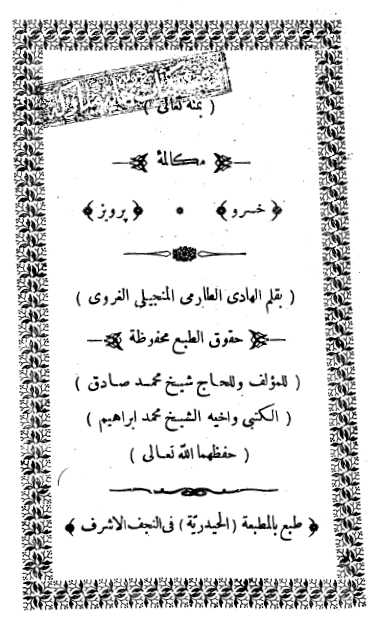 ( بمنه تعالى )
مكالمة
﴿ خسرو ﴾ * ﴿ پرويز ﴾
( بقلم الهادى الطارمى المنجيلى الغروى )
حقوق الطبع محفوظة
( للمؤلف وللحاج شيخ محمد صادق )
( الكتبى واخيه الشيخ محمد ابراهيم )
( حفظهما الله تعالى )
﴿ طبع بالمطبعة ( الحيدريّة ) فى النجف الاشرف ﴾